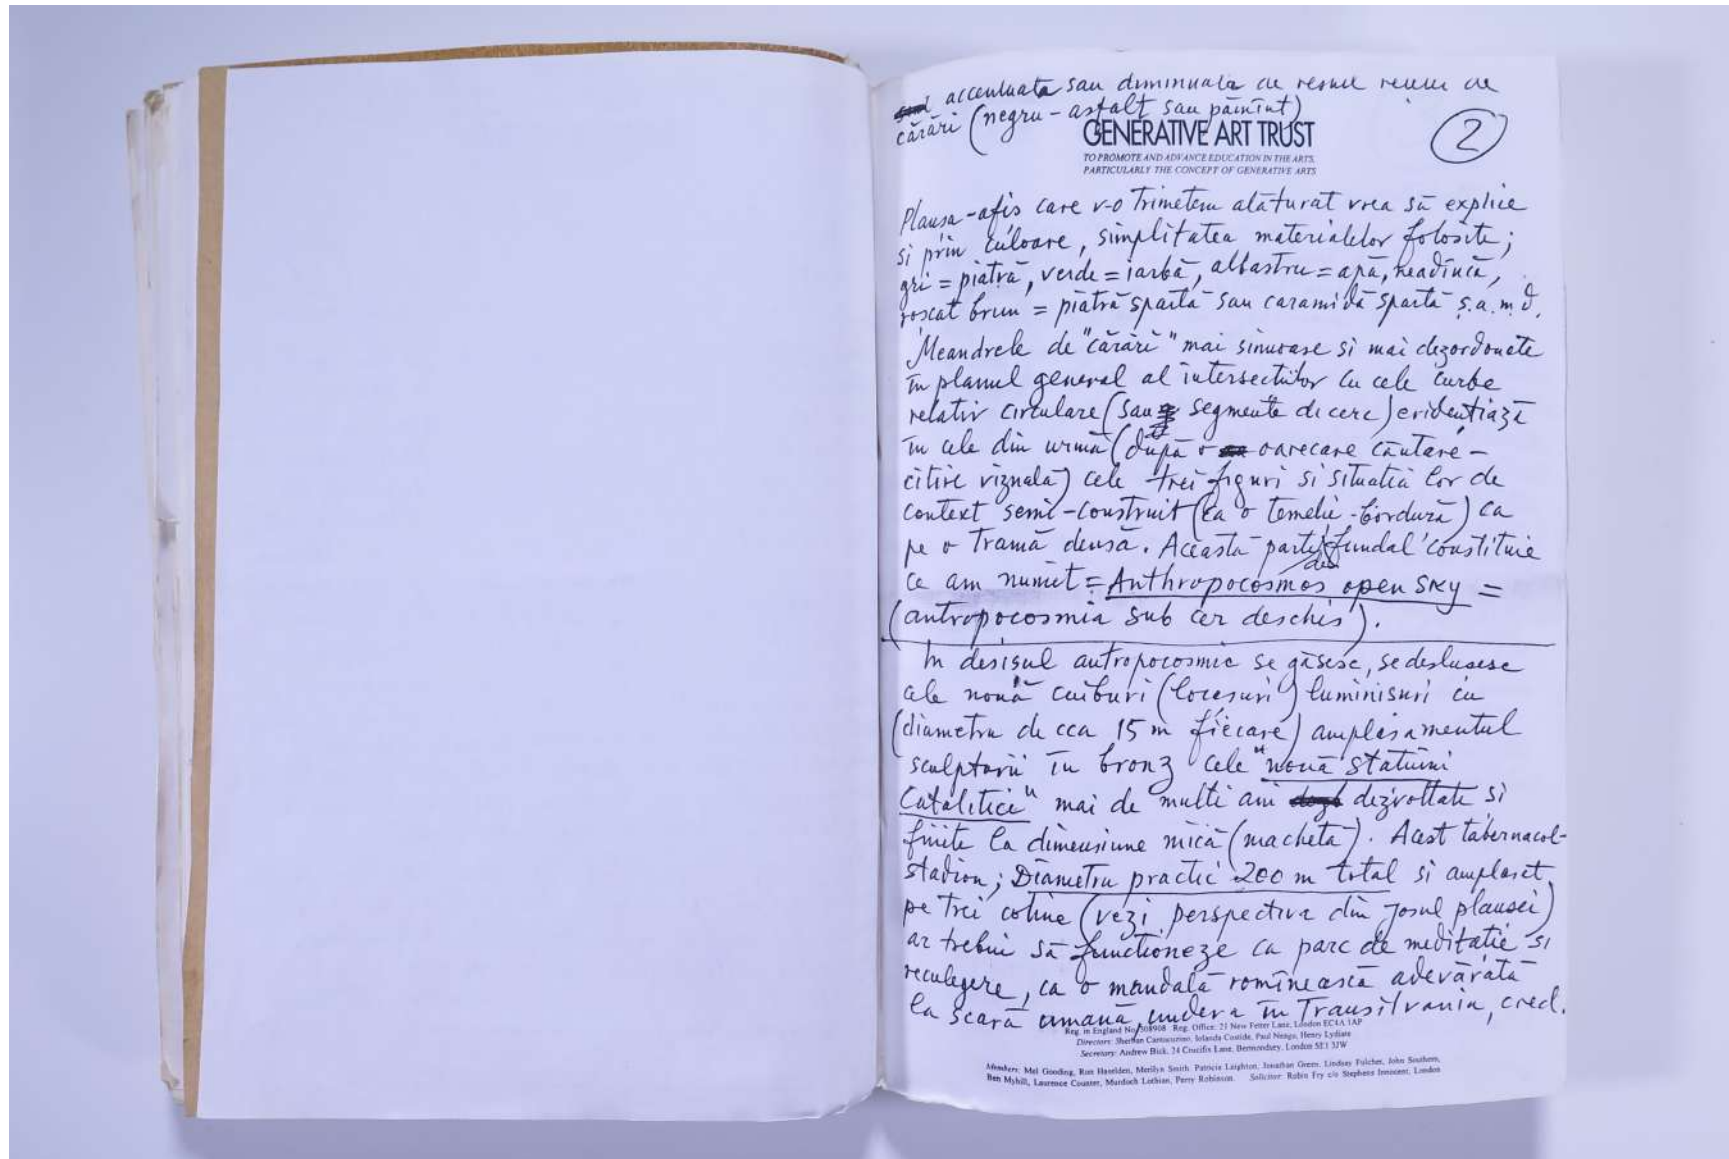 accentuata sau diminuata de restul retelei de
cărări (negru - asfalt sau pămînt)
GENERATIVE ART TRUST
2
TO PROMOTE AND ADVANCE EDUCATION IN THE ARTS,
PARTICULARLY THE CONCEPT OF GENERATIVE ARTS
Plansa-afis care v-o trimetem alăturat vrea să explice
si prin culoare, simplitatea materialelor folosite;
gri = piatră, verde = iarbă, albastru = apă, neadîncă,
roscat brun = piatră spartă sau caramidă spartă ș.a.m.d.
Meandrele de "cărări" mai sinuoase si mai dezordonate
în planul general al intersectiilor cu cele curbe
relativ circulare (sau segmente de cerc) evidențiază
în cele din urmă (după o oarecare căutare -
citire vizuală) cele trei figuri si situatia lor de
context semi-construit (ca o temelie-bordură) ca
pe o tramă densă. Aceasta parte fundal constituie
ce am numit = Anthropocosmos open sky =
(antropocosmia sub cer deschis).
In desisul antropocosmic se găsesc, se deslusesc
cele nouă cuiburi (locasuri) luminisuri cu
(diametru de cca 15 m fiecare) amplasamentul
sculpturii în bronz cele "nouă statiuni
Catalitice" mai de multi ani dezvoltate si
finite la dimensiune mică (machetă). Acest tabernacol-
stadion; Diametru practic 200 m total si amplasat
pe trei coline (vezi perspectiva din josul plansei)
ar trebui să functioneze ca parc de meditație si
reculegere, ca o mandală romînească adevărată
la scară umană, undeva în Transilvania, cred.
Reg. in England No 508908 Reg. Office: 21 New Fetter Lane, London EC4A 1AP
Directors: Sherban Cantacuzino, Iolanda Costide, Paul Neagu, Henry Lydiate
Secretary: Andrew Bick, 24 Crucifix Lane, Bermondsey, London SE1 3JW
Members: Mel Gooding, Ron Haselden, Merilyn Smith, Patricia Leighton, Jonathan Green, Lindsay Fulcher, John Southern,
Ben Myhill, Laurence Counter, Murdoch Lothian, Perry Robinson. Solicitor: Robin Fry c/o Stephens Innocent, London